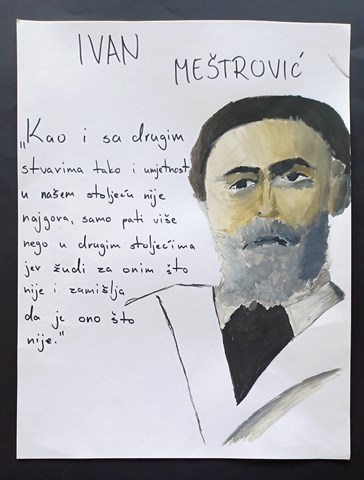 IVAN MEŠTROVIĆ
„Kao i sa drugim
stvarima tako i umjetnost
u našem stoljeću nije
najgora, samo pati više
nego u drugim stoljećima
jer žudi za onim što
nije i zamišlja
da je ono što
nije."